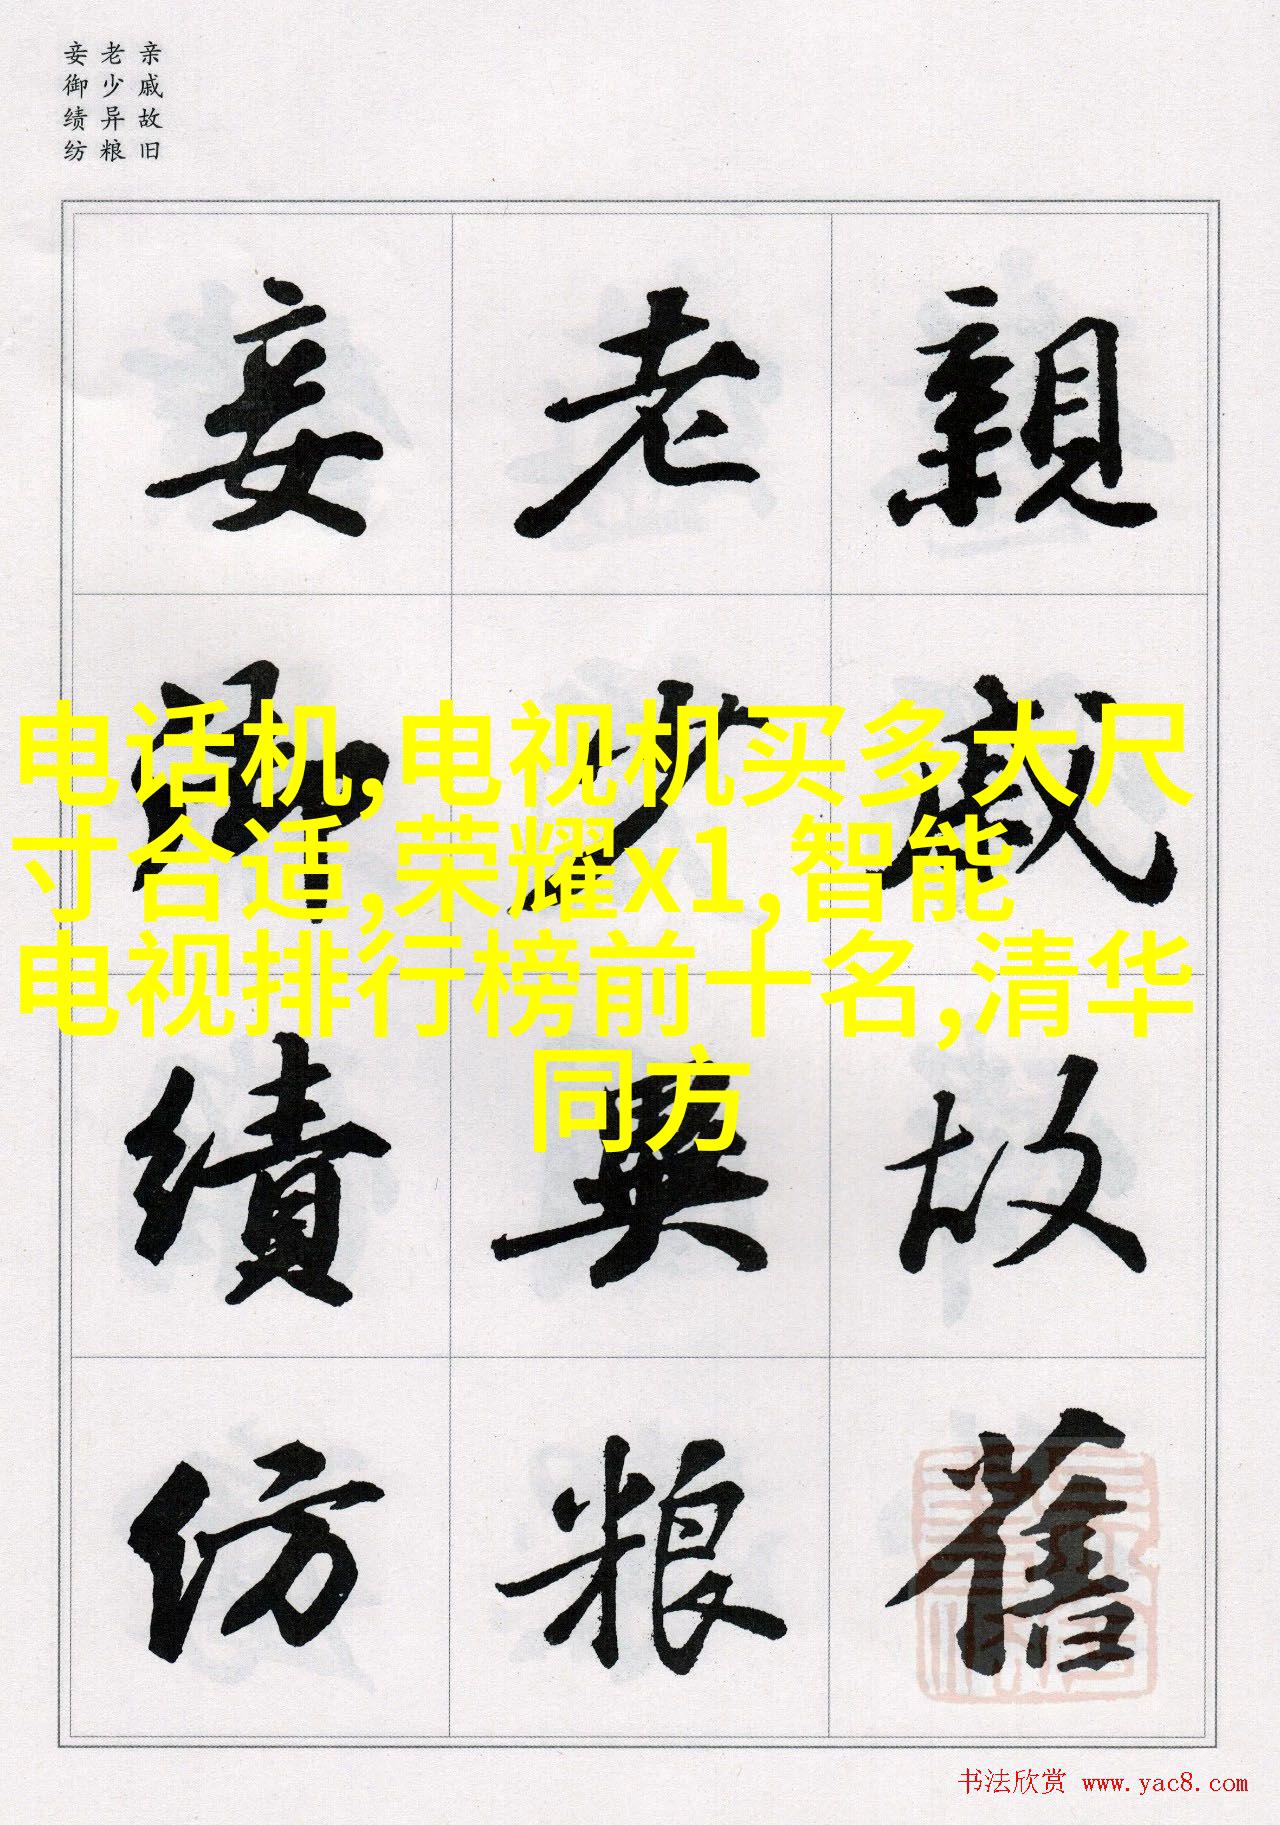 亲戚故旧
老少异粮
妾御绩纺
親戚故舊
老少異粮
妾御績紡
电话机,电视机买多大尺
寸合适,荣耀x1,智能
电视排行榜前十名,清华
同方
书法欣赏 www.yac8.com